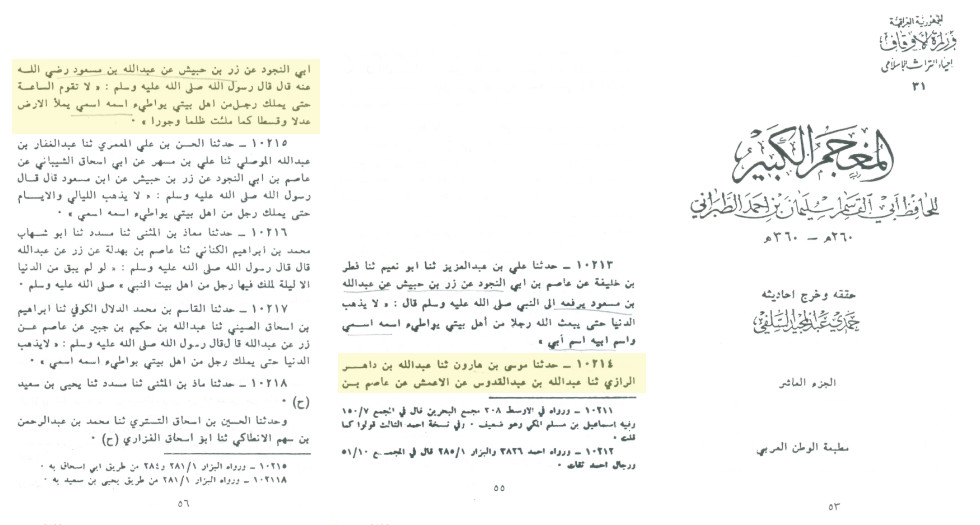 الجمهورية العراقية
وزارة الأوقاف
إحياء التراث الإسلامي
٣١
المعجم الكبير
للحافظ أبي القاسم سليمان بن احمد الطبراني
٢٦٠هـ – ٣٦٠هـ
حققه وخرج احاديثه
حمدي عبد المجيد السلفي
الجزء العاشر
مطبعة الوطن العربي
٥٣
١٠٢١٣ – حدثنا علي بن عبدالعزيز ثنا ابو نعيم ثنا فطر
بن خليفة عن عاصم بن ابي النجود عن زر بن حبيش عن عبدالله
بن مسعود يرفعه الى النبي صلى الله عليه وسلم قال : « لا يذهب
الدنيا حتى يبعث الله رجلا من أهل بيتي يواطيء اسمه اسمي
واسم ابيه اسم أبي »
١٠٢١٤ – حدثنا موسى بن هارون ثنا عبدالله بن داهر
الرازي ثنا عبدالله بن عبدالقدوس عن الاعمش عن عاصم بن
١٠٢١١ – ورواه في الاوسط ٢٠٨ مجمع البحرين قال في المجمع ١٥٠/٧
وفيه اسماعيل بن مسلم المكي وهو ضعيف ٠ وفي نسخة احمد الثالث قولوا كما
قلت ٠
١٠٢١٢ – ورواه احمد ٣٨٢٦ والبزار ٢٨٥/١ قال في المجمع ٥١/١٠
ورجال احمد ثقات ٠
٥٥
ابي النجود عن زر بن حبيش عن عبدالله بن مسعود رضي الله
عنه قال قال رسول الله صلى الله عليه وسلم : « لا تقوم الساعة
حتى يملك رجل من اهل بيتي يواطيء اسمه اسمي يملأ الارض
عدلا وقسطا كما ملئت ظلما وجورا » ٠
١٠٢١٥ – حدثنا الحسن بن علي المعمري ثنا عبدالغفار بن
عبدالله الموصلي ثنا علي بن مسهر عن ابي اسحاق الشيباني عن
عاصم بن ابي النجود عن زر بن حبيش عن ابن مسعود قال قال
رسول الله صلى الله عليه وسلم : « لا يذهب الليالي والايام
حتى يملك رجل من اهل بيتي يواطيء اسمه اسمي » ٠
١٠٢١٦ – حدثنا معاذ بن المثنى ثنا مسدد ثنا ابو شهاب
محمد بن ابراهيم الكناني ثنا عاصم بن بهدلة عن زر عن عبدالله
قال قال رسول الله صلى الله عليه وسلم : « لو لم يبق من الدنيا
الا ليلة لملك فيها رجل من اهل بيت النبي » صلى الله عليه وسلم ٠
١٠٢١٧ – حدثنا القاسم بن محمد الدلال الكوفي ثنا ابراهيم
بن اسحاق الصيني ثنا عبدالله بن حكيم بن جبير عن عاصم عن
زر عن عبدالله قا لقال رسول الله صلى الله عليه وسلم : « لايذهب
الدنيا حتى يملك رجل من اهل بيتي يواطيء اسمه اسمي » ٠
١٠٢١٨ – حدثنا ماذ بن المثنى ثنا مسدد ثنا يحيى بن سعيد
(ح) ٠
وحدثنا الحسين بن اسحاق التستري ثنا محمد بن عبدالرحمن
بن سهم الانطاكي ثنا ابو اسحاق الفزاري (ح) ٠
١٠٢١٥ – ورواه البزار ٢٨١/١ و٢٨٤ من طريق ابي اسحاق به ٠
١٠٢١١٨ – ورواه البزار ٢٨١/١ من طريق يحيى بن سعيد به ٠
٥٦